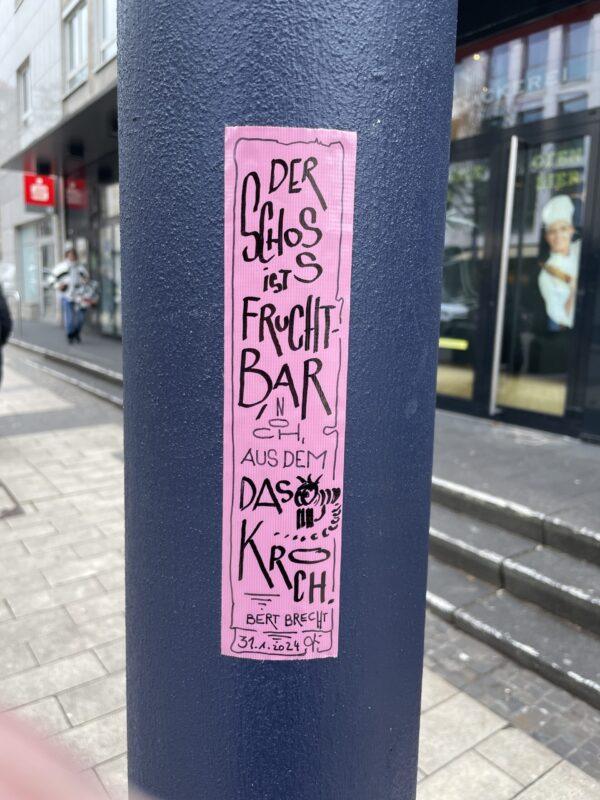 DER
SCHOSS
iST
FRUCHT-
BAR
NOCH,
AUS DEM
DAS
KROCH!
BERT BRECHT
31.1.2024